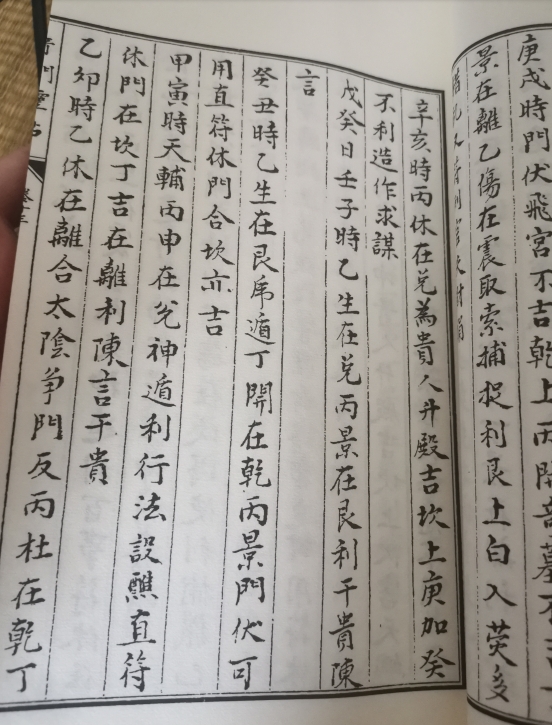 庚戌時門伏飛宮不吉乾上丙開
景在離乙傷在震取索捕捉利艮上白入荧多
辛亥時丙休在兌為貴人升殿吉坎上庚加癸
不利造作求謀
戊癸日壬子時乙生在兌丙景在艮利干貴陳
言
癸丑時乙生在艮乕遁丁開在乾丙景門伏可
用直符休門合坎亦吉
甲寅時天輔丙申在兌神遁利行法設醮直符
休門在坎丁吉在離利陳言干貴
乙卯時乙休在離合太陰爭門反丙杜在乾丁